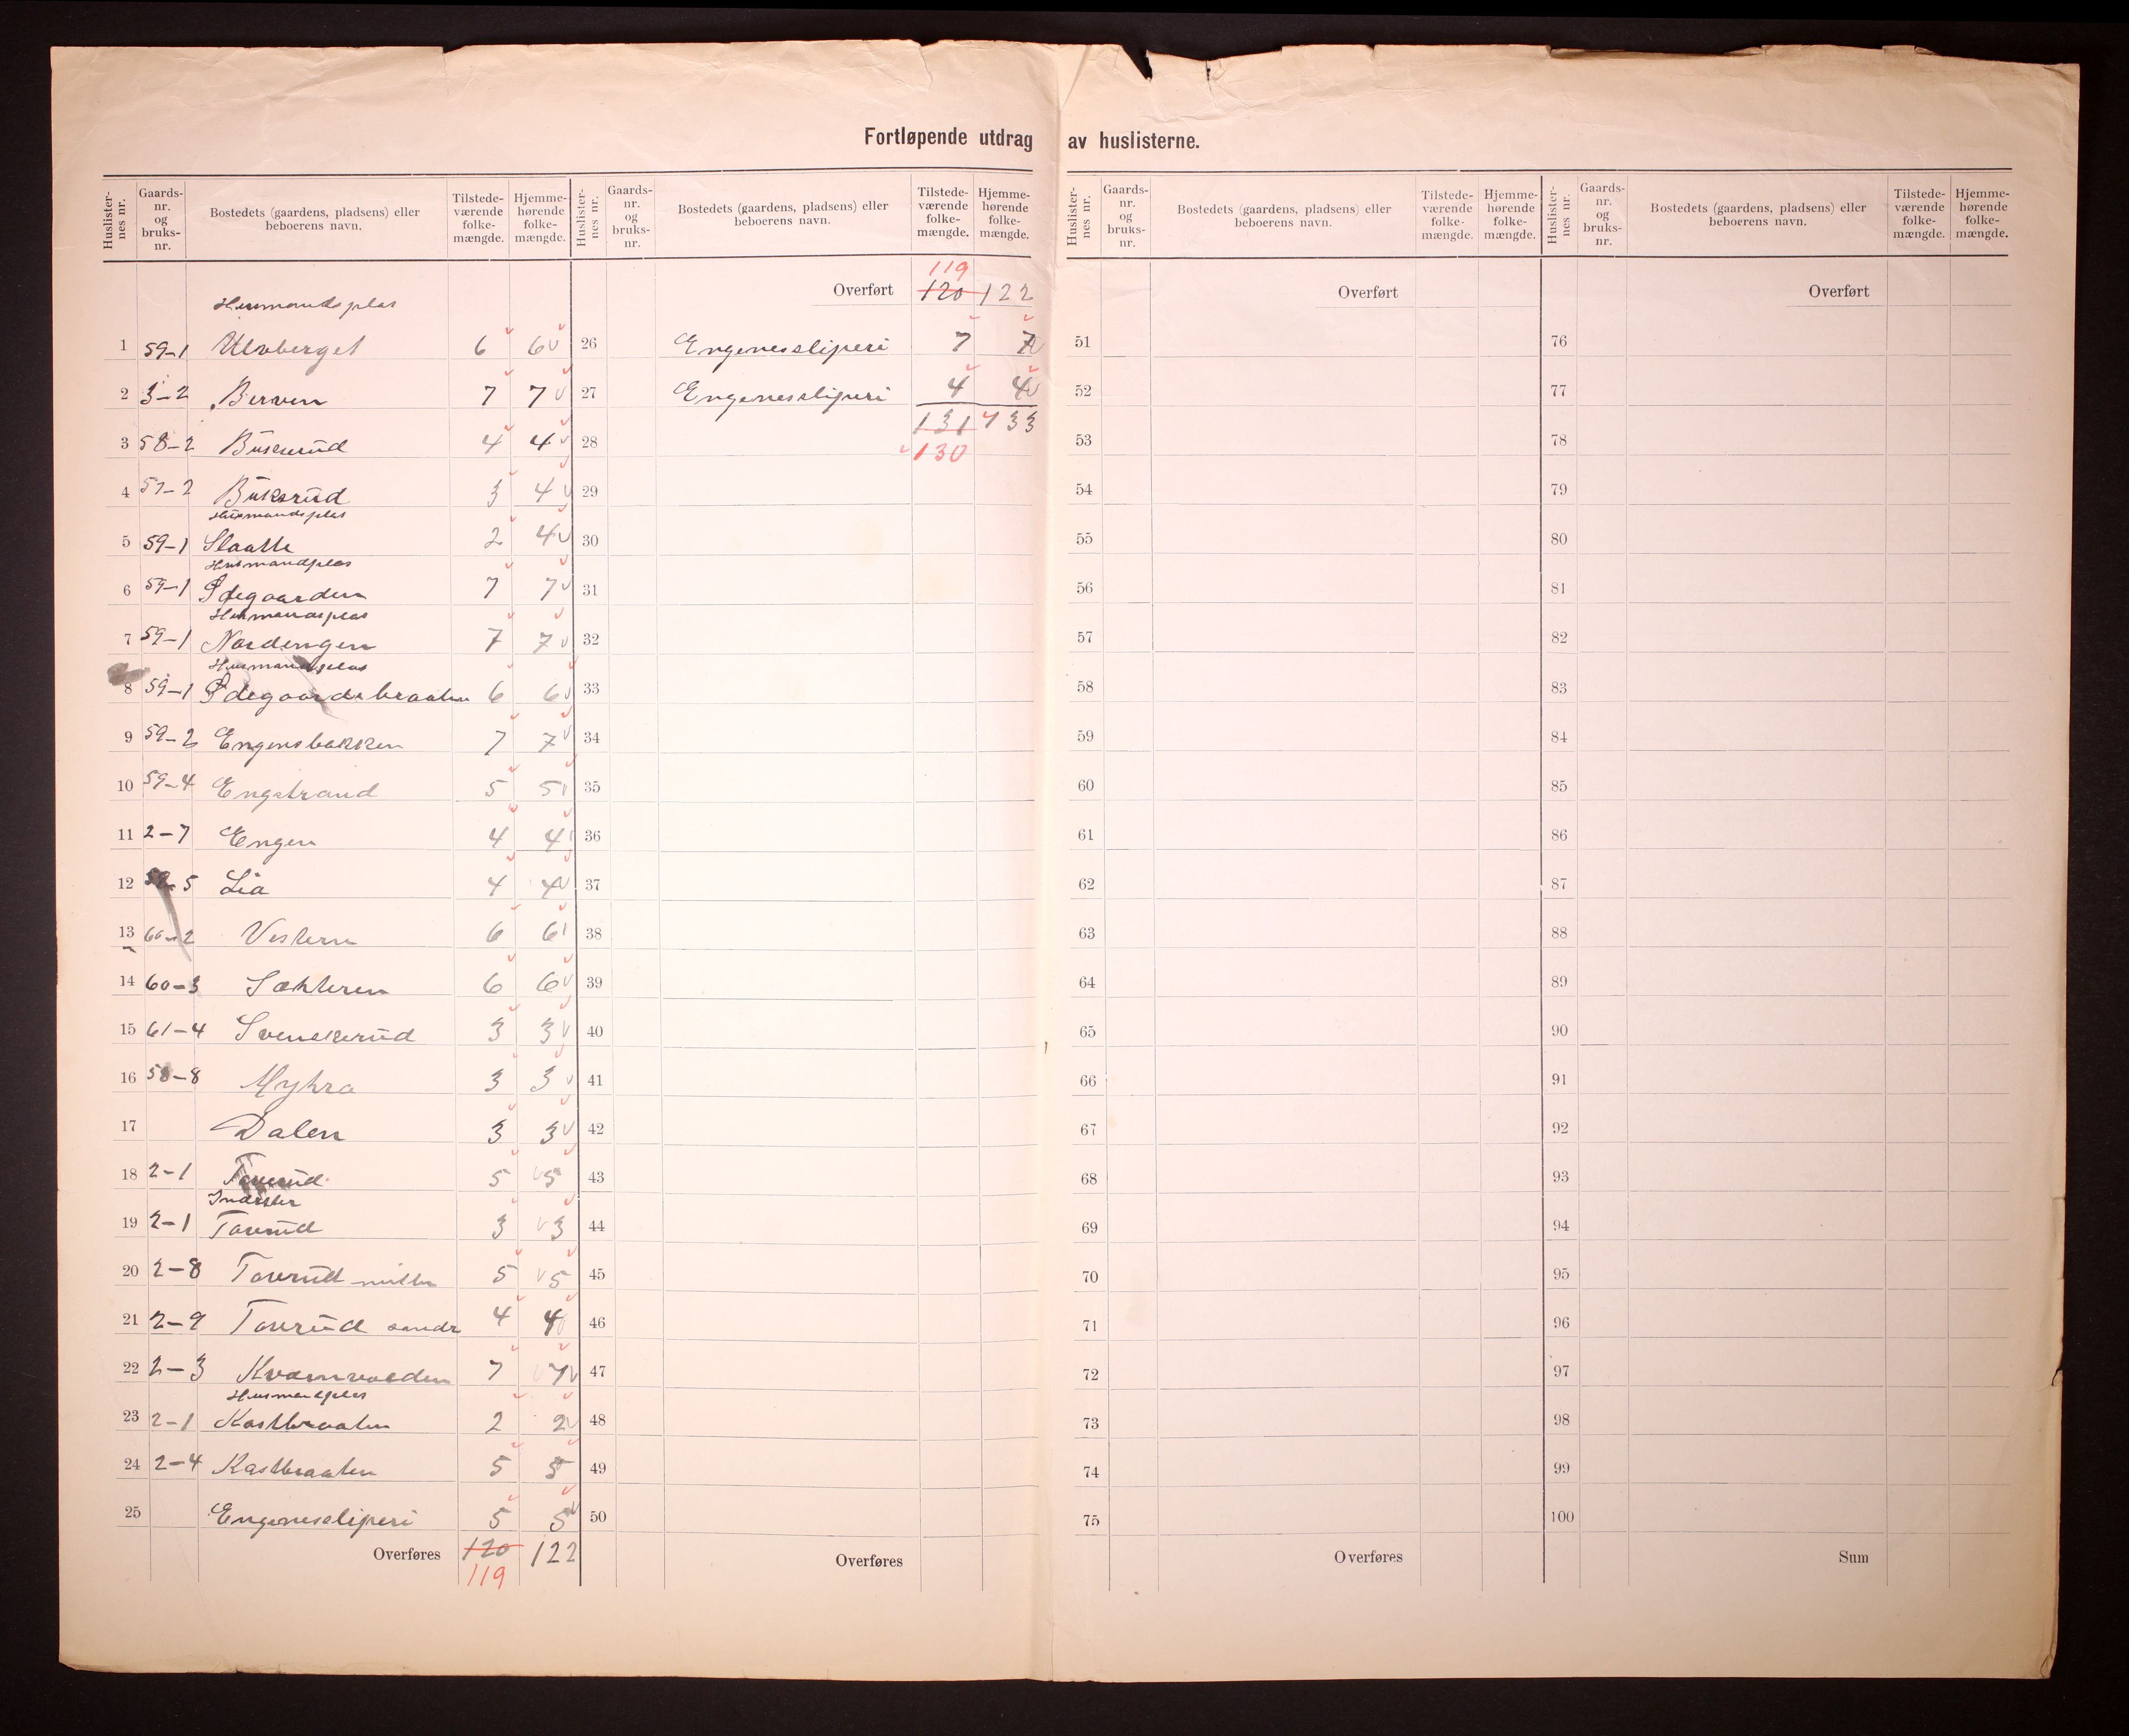 Fortløpende utdrag av huslisterne.
Huslister-nes nr. Gaards-nr. og bruks-nr. Bostedets (gaardens, pladsens) eller beboerens navn. Tilstede-værende folke-mængde. Hjemme-hørende folke-mængde.
Husmandsplas
1 59-1 Ulvberget 6 6
2 3-2 Berven 7 7
3 58-2 Buskerud 4 4
4 57-2 Buksrud 3 4
Husmandsplas
5 59-1 Slaatte 2 4
Husmandplas
6 59-1 Ødegaarden 7 7
Husmandsplas
7 59-1 Nordengen 7 7
Husmandsplas
8 59-1 Ødegaardsbraaten 6 6
9 59-2 Engensbakken 7 7
10 59-4 Engstrand 5 5
11 2-7 Engen 4 4
12 58-5 Lia 4 4
13 60-2 Vestern 6 6
14 60-3 Sækteren 6 6
15 61-4 Svenskerud 3 3
16 58-8 Myhra 3 3
17 Dalen 3 3
18 2-1 Toverud 5 5
Inderster
19 2-1 Toverud 3 3
20 2-8 Toverud mitte 5 5
21 2-9 Toverud søndr 4 4
22 2-3 Kværnvolden 7 7
Husmandplas
23 2-1 Kastbraaten 2 2
24 2-4 Kastbraaten 5 5
25 Engenessliperi 5 5
Overføres 120 122
119
Huslister-nes nr. Gaards-nr. og bruks-nr. Bostedets (gaardens, pladsens) eller beboerens navn. Tilstede-værende folke-mængde. Hjemme-hørende folke-mængde.
119
Overført 120 122
26 Engenessliperi 7 7
27 Engenessliperi 4 4
131 133
28 130
29
30
31
32
33
34
35
36
37
38
39
40
41
42
43
44
45
46
47
48
49
50
Overføres
Huslister-nes nr. Gaards-nr. og bruks-nr. Bostedets (gaardens, pladsens) eller beboerens navn. Tilstede-værende folke-mængde. Hjemme-hørende folke-mængde.
Overført
51
52
53
54
55
56
57
58
59
60
61
62
63
64
65
66
67
68
69
70
71
72
73
74
75
Overføres
Huslister-nes nr. Gaards-nr. og bruks-nr. Bostedets (gaardens, pladsens) eller beboerens navn. Tilstede-værende folke-mængde. Hjemme-hørende folke-mængde.
Overført
76
77
78
79
80
81
82
83
84
85
86
87
88
89
90
91
92
93
94
95
96
97
98
99
100
Sum